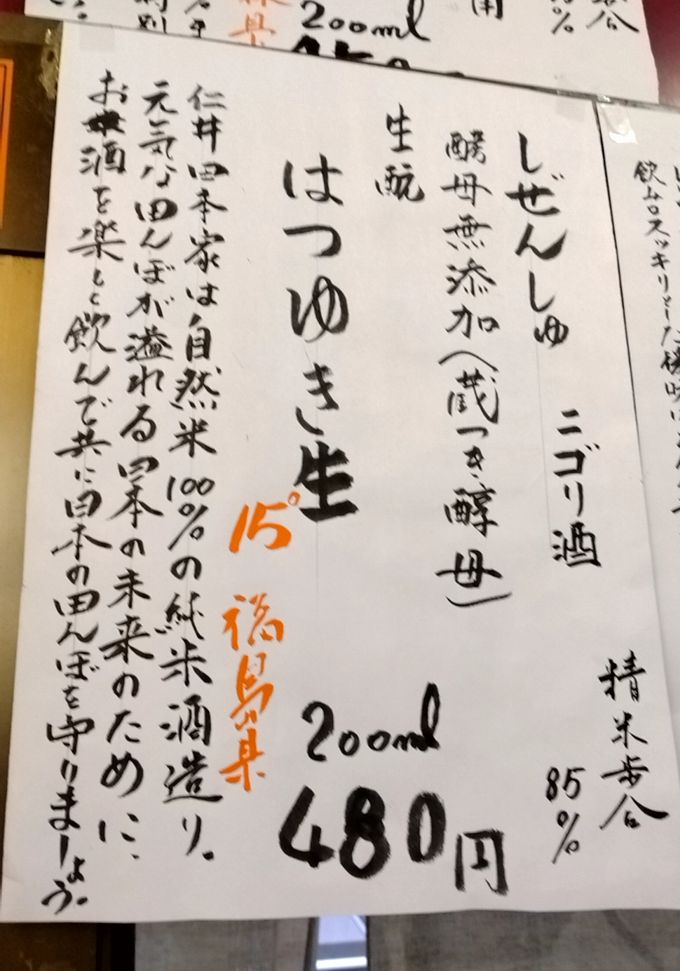 しぜんしゅ ニゴリ酒
精米歩合
85%
酵母無添加(蔵つき酵母)
生酛
はつゆき生
200ml
480円
15° 福島県
仁井田本家は自然米100%の純米酒造り。
元気な田んぼが溢れる日本の未来のために、
お酒を楽しく飲んで共に日本の田んぼを守りましょう。
200ml
精米歩合
飲み口スッキリとした